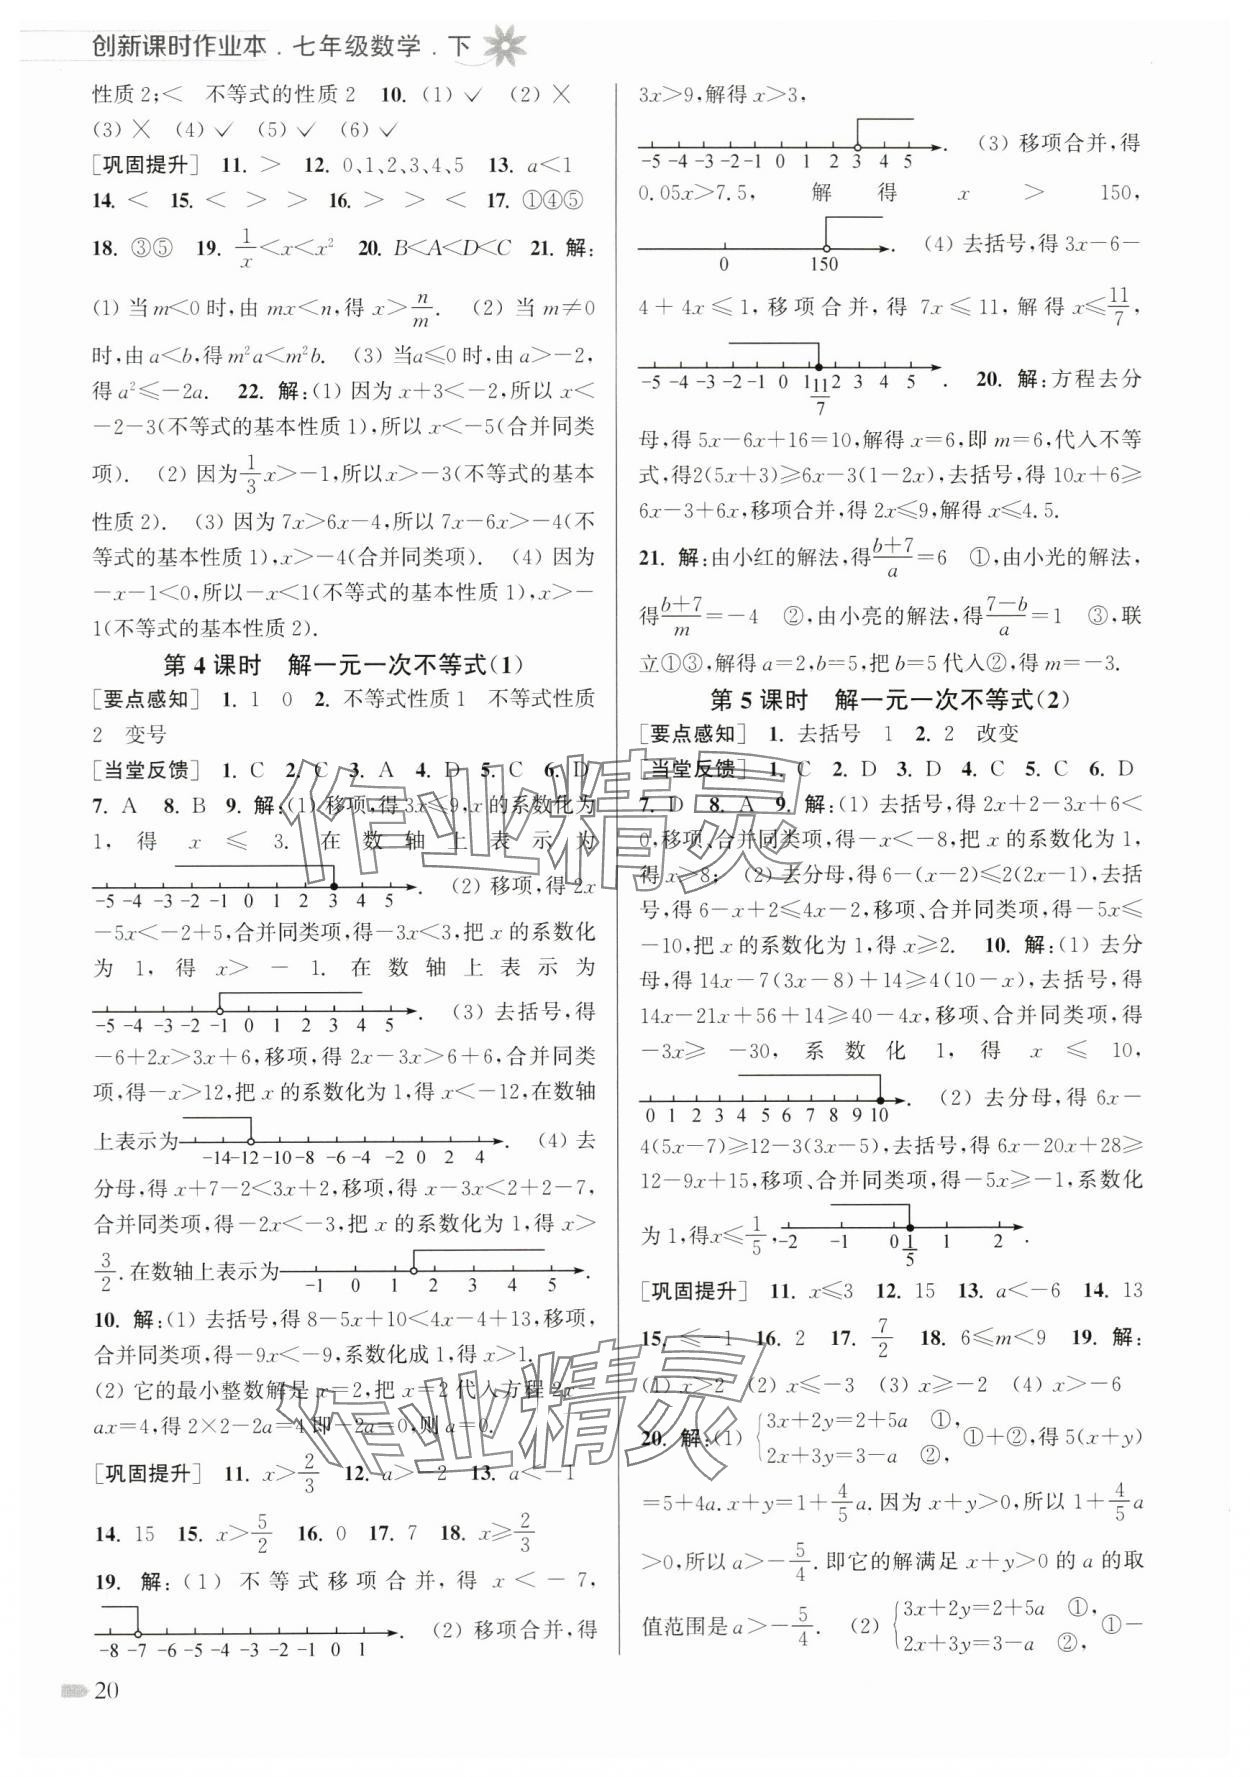 创新课时作业本．七年级数学．下
性质2;<　不等式的性质2　10.（1）✓　（2）╳
（3）╳　（4）✓　（5）✓　（6）✓
［巩固提升］　11. >　12. 0、1、2、3、4、5　13. a<1
14. <　15. <　>　>　16. >　>　<　17. ①④⑤
18. ③⑤　19. 1/x<x<x²　20. B<A<D<C　21. 解:
(1) 当m<0时,由mx<n,得x>n/m.　(2) 当m≠0
时,由a<b,得m²a<m²b.　(3) 当a≤0时,由a>-2,
得a²≤-2a.　22. 解:(1) 因为x+3<-2,所以x<
-2-3(不等式的基本性质1),所以x<-5(合并同类
项).　(2) 因为1/3x>-1,所以x>-3(不等式的基本
性质2).　(3) 因为7x>6x-4,所以7x-6x>-4(不
等式的基本性质1),x>-4(合并同类项).　(4) 因为
-x-1<0,所以-x<1(不等式的基本性质1),x>-
1(不等式的基本性质2).
第4课时　解一元一次不等式(1)
［要点感知］　1. 1　0　2. 不等式性质1　不等式性质
2　变号
［当堂反馈］　1. C　2. C　3. A　4. D　5. C　6. D
7. A　8. B　9. 解:(1) 移项,得3x≤9,x的系数化为
1,得x≤3.在数轴上表示为
-5 -4 -3 -2 -1 0 1 2 3 4 5 .　(2) 移项,得2x
-5x<-2+5,合并同类项,得-3x<3,把x的系数化
为1,得x>-1.在数轴上表示为
-5 -4 -3 -2 -1 0 1 2 3 4 5 .　(3) 去括号,得
-6+2x>3x+6,移项,得2x-3x>6+6,合并同类
项,得-x>12,把x的系数化为1,得x<-12,在数轴
上表示为 -14 -12 -10 -8 -6 -4 -2 0 2 4 .　(4) 去
分母,得x+7-2<3x+2,移项,得x-3x<2+2-7,
合并同类项,得-2x<-3,把x的系数化为1,得x>
3/2.在数轴上表示为 -1 0 1 2 3 4 5 .
10. 解:(1) 去括号,得8-5x+10<4x-4+13,移项,
合并同类项,得-9x<-9,系数化成1,得x>1.
(2) 它的最小整数解是x=2,把x=2代入方程2x-
ax=4,得2×2-2a=4即-2a=0,则a=0.
［巩固提升］　11. x>2/3　12. a>-2　13. a<-1
14. 15　15. x>5/2　16. 0　17. 7　18. x≥2/3
19. 解:(1) 不等式移项合并,得x<-7,
-8 -7 -6 -5 -4 -3 -2 -1 0 1 .　(2) 移项合并,得
20
3x>9,解得x>3,
-5 -4 -3 -2 -1 0 1 2 3 4 5 .　(3) 移项合并,得
0.05x>7.5,解得x>150,
0 150 .　(4) 去括号,得3x-6-
4+4x≤1,移项合并,得7x≤11,解得x≤11/7,
-5 -4 -3 -2 -1 0 1 11/7 2 3 4 5 .　20. 解:方程去分
母,得5x-6x+16=10,解得x=6,即m=6,代入不等
式,得2(5x+3)≥6x-3(1-2x),去括号,得10x+6≥
6x-3+6x,移项合并,得2x≤9,解得x≤4.5.
21. 解:由小红的解法,得(b+7)/a=6　①,由小光的解法,
得(b+7)/m=-4　②,由小亮的解法,得(7-b)/a=1　③,联
立①③,解得a=2,b=5,把b=5代入②,得m=-3.
第5课时　解一元一次不等式(2)
［要点感知］　1. 去括号　1　2. 2　改变
［当堂反馈］　1. C　2. D　3. D　4. C　5. C　6. D
7. D　8. A　9. 解:(1) 去括号,得2x+2-3x+6<
0,移项、合并同类项,得-x<-8,把x的系数化为1,
得x>8;　(2) 去分母,得6-(x-2)≤2(2x-1),去括
号,得6-x+2≤4x-2,移项、合并同类项,得-5x≤
-10,把x的系数化为1,得x≥2.　10. 解:(1) 去分
母,得14x-7(3x-8)+14≥4(10-x),去括号,得
14x-21x+56+14≥40-4x,移项、合并同类项,得
-3x≥-30,系数化1,得x≤10,
0 1 2 3 4 5 6 7 8 9 10 .　(2) 去分母,得6x-
4(5x-7)≥12-3(3x-5),去括号,得6x-20x+28≥
12-9x+15,移项、合并同类项,得-5x≥-1,系数化
为1,得x≤1/5, -2 -1 0 1/5 1 2 .
［巩固提升］　11. x≤3　12. 15　13. a<-6　14. 13
15. ≤-1　16. 2　17. 7/2　18. 6≤m<9　19. 解:
(1) x>2　(2) x≤-3　(3) x≥-2　(4) x>-6
20. 解:(1) {3x+2y=2+5a　①, 2x+3y=3-a　②, ①+②,得5(x+y)
=5+4a.x+y=1+4/5a.因为x+y>0,所以1+4/5a
>0,所以a>-5/4.即它的解满足x+y>0的a的取
值范围是a>-5/4.　(2) {3x+2y=2+5a　①, 2x+3y=3-a　②, ①-
作业精灵
作业精灵